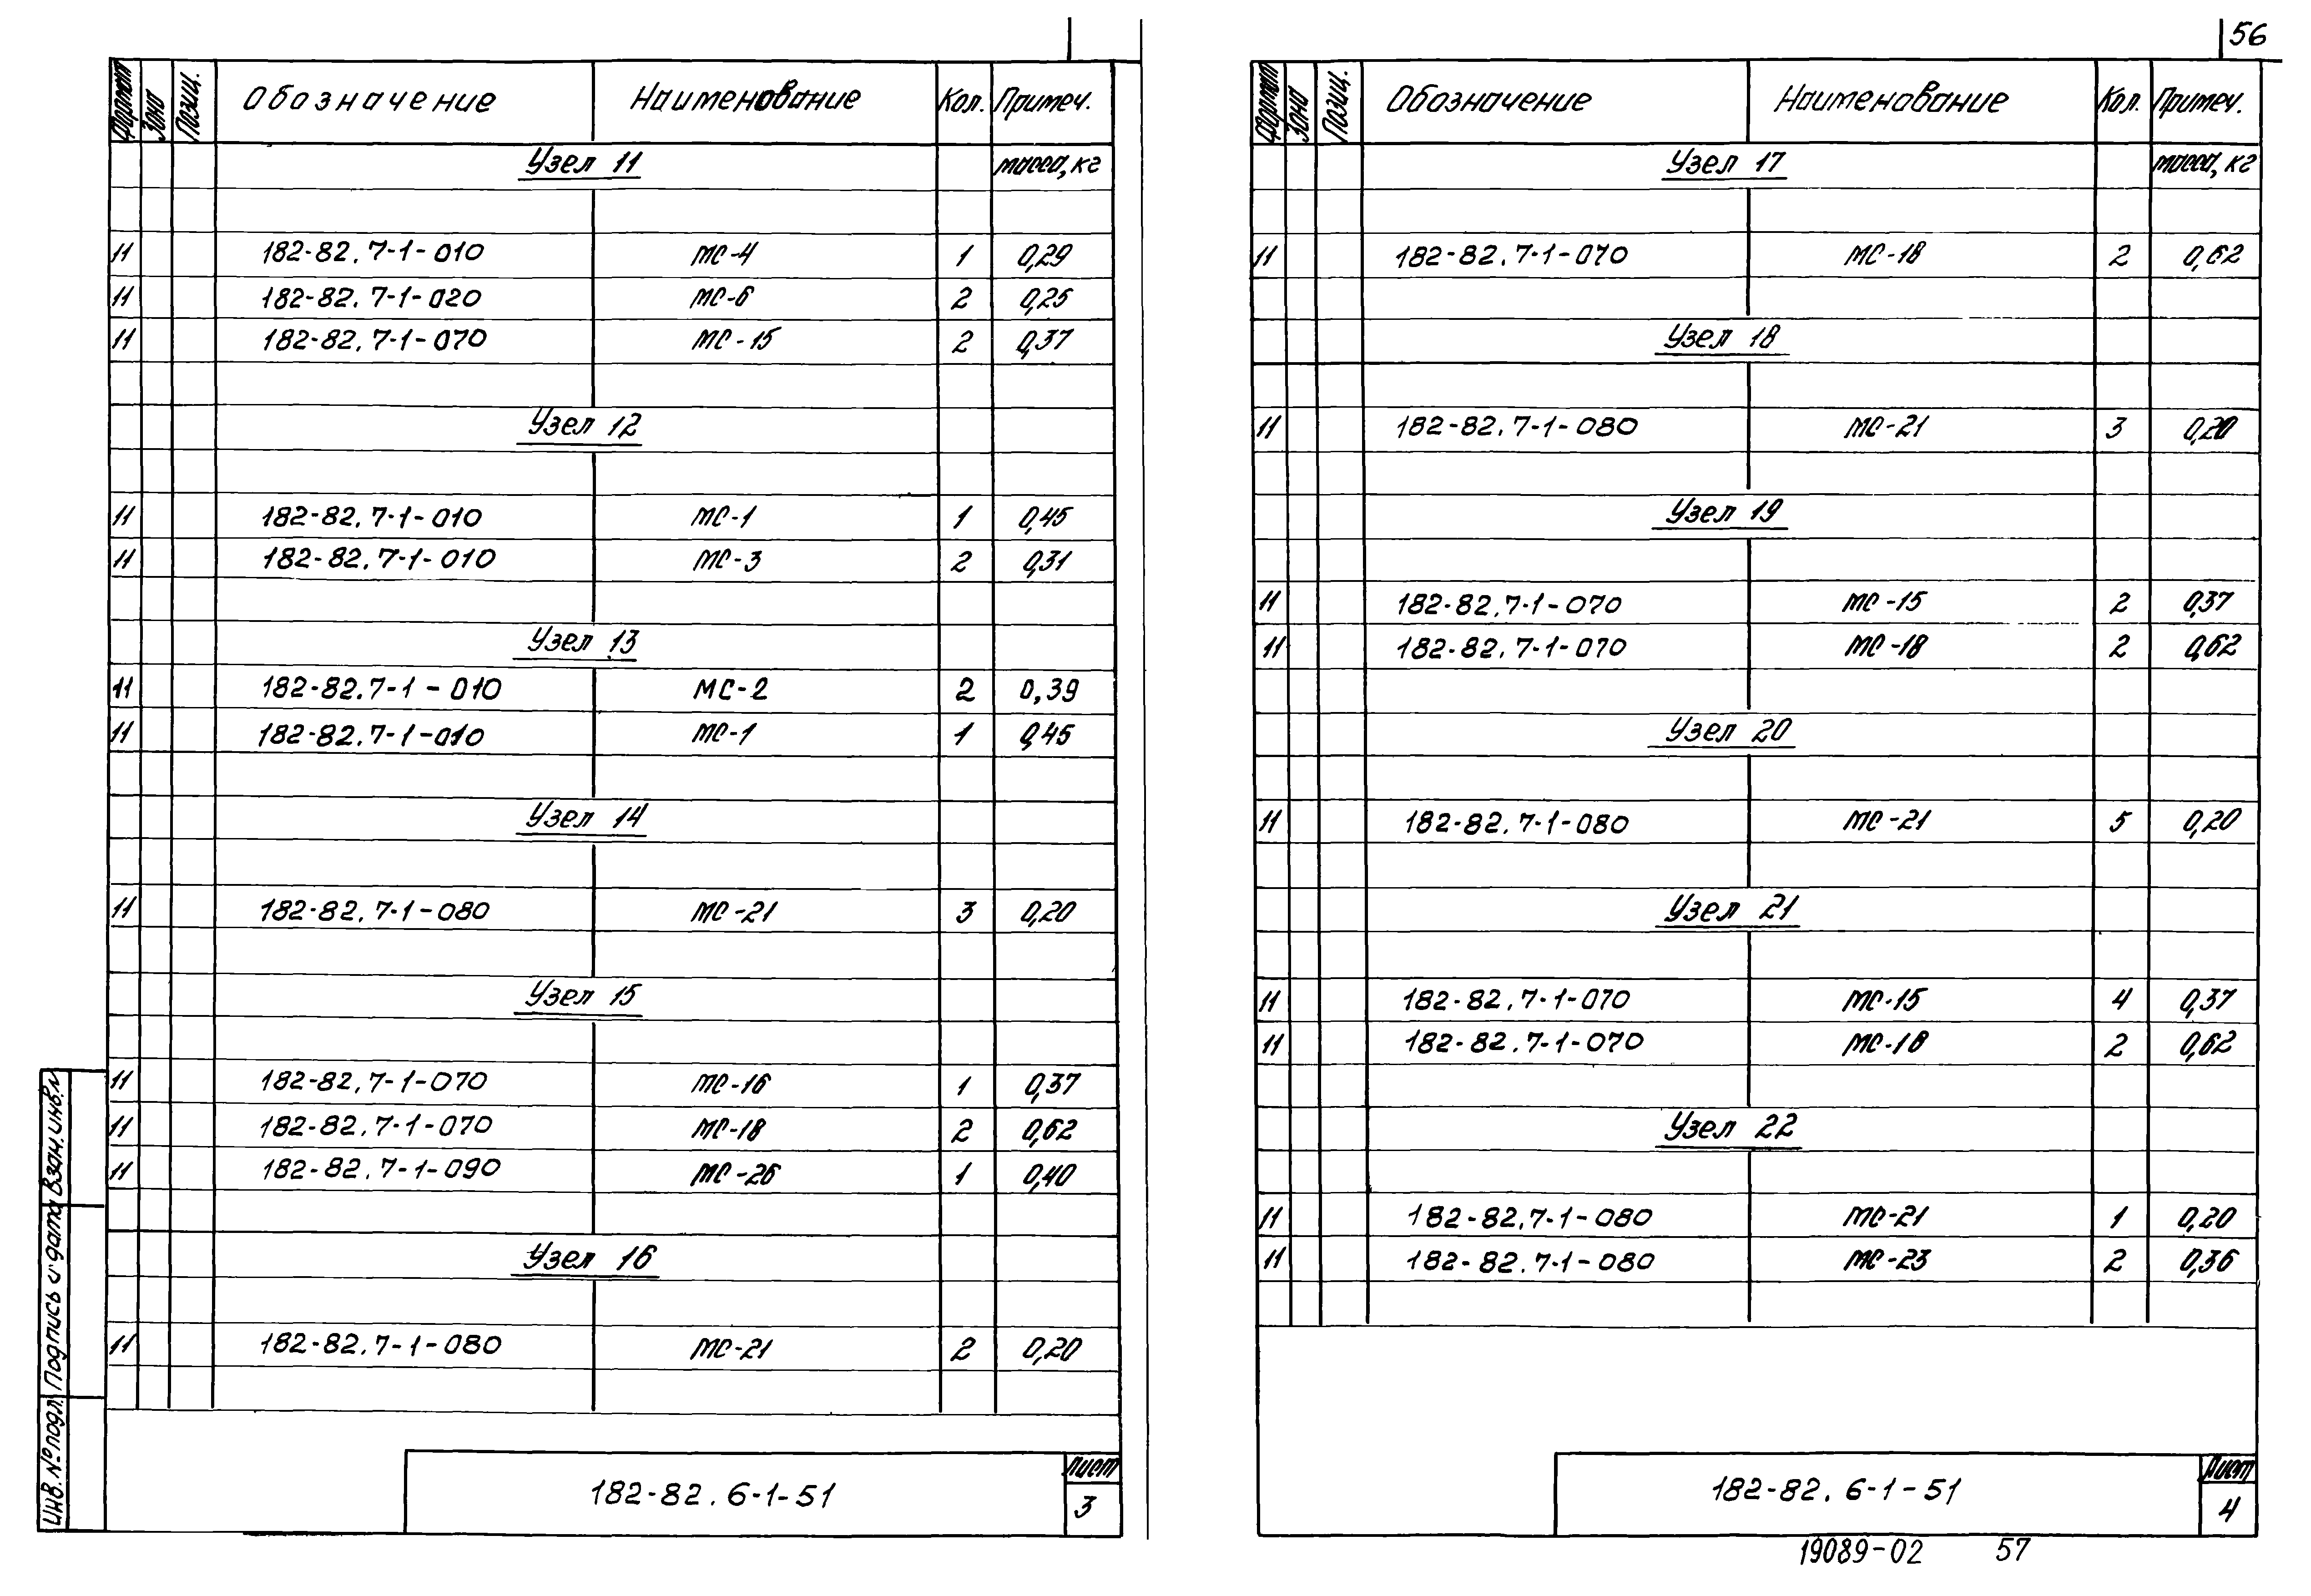 56
Формат Зона Позиц. Обозначение Наименование Кол. Примеч.
Узел 11 масса, кг
11 182-82.7-1-010 МС-4 1 0,29
11 182-82.7-1-020 МС-6 2 0,25
11 182-82.7-1-070 МС-15 2 0,37
Узел 12
11 182-82.7-1-010 МС-1 1 0,45
11 182-82.7-1-010 МС-3 2 0,31
Узел 13
11 182-82.7-1-010 МС-2 2 0,39
11 182-82.7-1-010 МС-1 1 0,45
Узел 14
11 182-82.7-1-080 МС-21 3 0,20
Узел 15
11 182-82.7-1-070 МС-16 1 0,37
11 182-82.7-1-070 МС-18 2 0,62
11 182-82.7-1-090 МС-26 1 0,40
Узел 16
11 182-82.7-1-080 МС-21 2 0,20
Инв. № подл. Подпись и дата Взам. инв. №
182-82.6-1-51
Лист
3
Формат Зона Позиц. Обозначение Наименование Кол. Примеч.
Узел 17 масса, кг
11 182-82.7-1-070 МС-18 2 0,62
Узел 18
11 182-82.7-1-080 МС-21 3 0,20
Узел 19
11 182-82.7-1-070 МС-15 2 0,37
11 182-82.7-1-070 МС-18 2 0,62
Узел 20
11 182-82.7-1-080 МС-21 5 0,20
Узел 21
11 182-82.7-1-070 МС-15 4 0,37
11 182-82.7-1-070 МС-18 2 0,62
Узел 22
11 182-82.7-1-080 МС-21 1 0,20
11 182-82.7-1-080 МС-23 2 0,36
182-82.6-1-51
Лист
4
19089-02 57